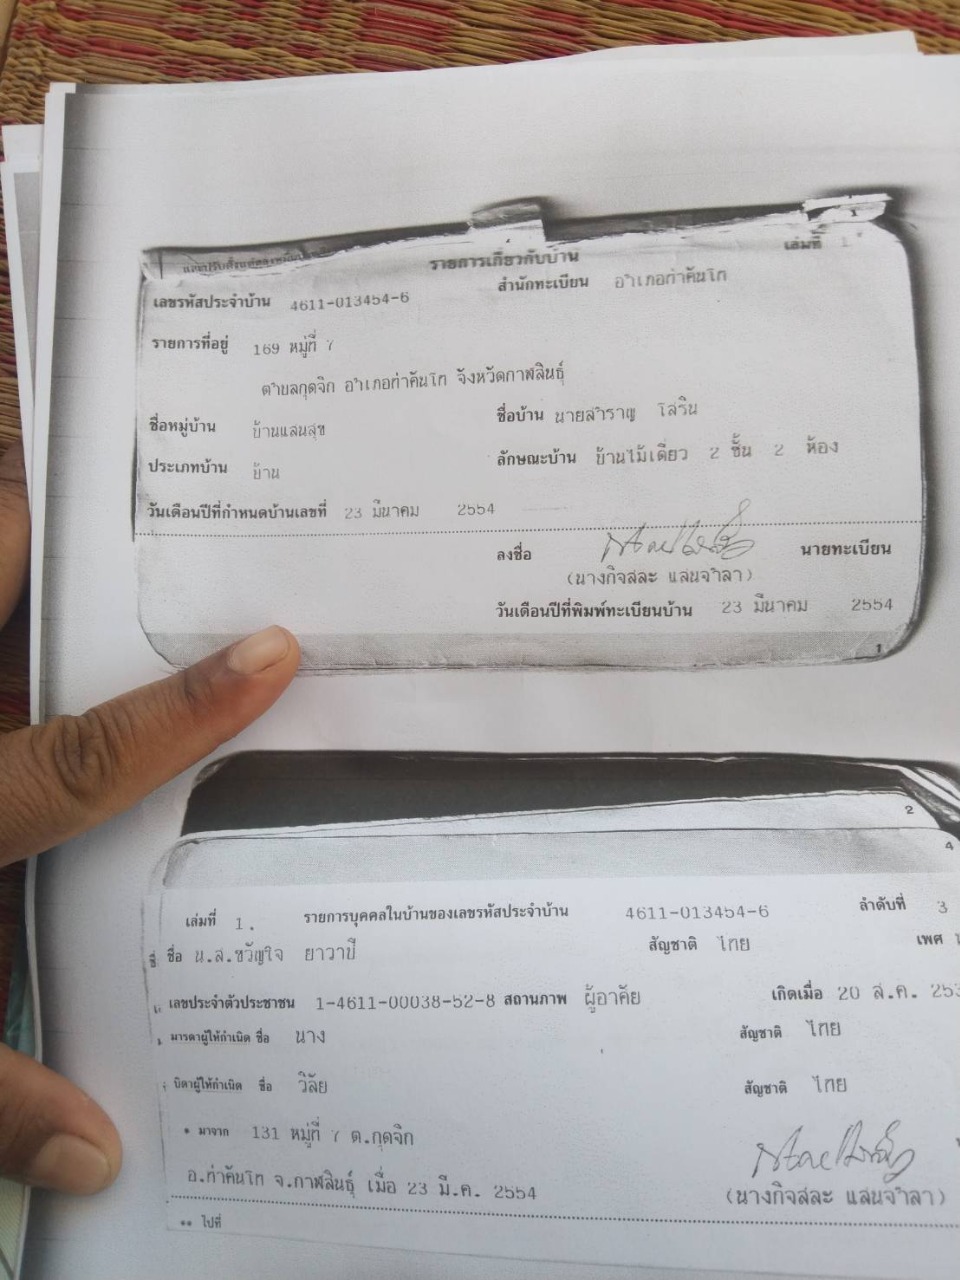 เล่มที่ 1
รายการเกี่ยวกับบ้าน
เลขรหัสประจำบ้าน 4611-013454-6 สำนักทะเบียน อำเภอท่าคันโท
รายการที่อยู่ 169 หมู่ที่ 7
ตำบลกุดจิก อำเภอท่าคันโท จังหวัดกาฬสินธุ์
ชื่อหมู่บ้าน บ้านแสนสุข ชื่อบ้าน นายสำราญ โสริน
ประเภทบ้าน บ้าน ลักษณะบ้าน บ้านไม้เดี่ยว 2 ชั้น 2 ห้อง
วันเดือนปีที่กำหนดบ้านเลขที่ 23 มีนาคม 2554
ลงชื่อ นายทะเบียน
(นางกิจสละ แสนจำลา)
วันเดือนปีที่พิมพ์ทะเบียนบ้าน 23 มีนาคม 2554
1
2
4
เล่มที่ 1. รายการบุคคลในบ้านของเลขรหัสประจำบ้าน 4611-013454-6 ลำดับที่ 3
ชื่อ น.ส.ขวัญใจ ยาวาปี สัญชาติ ไทย เพศ
เลขประจำตัวประชาชน 1-4611-00038-52-8 สถานภาพ ผู้อาศัย เกิดเมื่อ 20 ส.ค. 253
มารดาผู้ให้กำเนิด ชื่อ นาง สัญชาติ ไทย
บิดาผู้ให้กำเนิด ชื่อ วิลัย สัญชาติ ไทย
* มาจาก 131 หมู่ที่ 7 ต.กุดจิก
อ.ท่าคันโท จ.กาฬสินธุ์ เมื่อ 23 มี.ค. 2554
(นางกิจสละ แสนจำลา)
** ไปที่